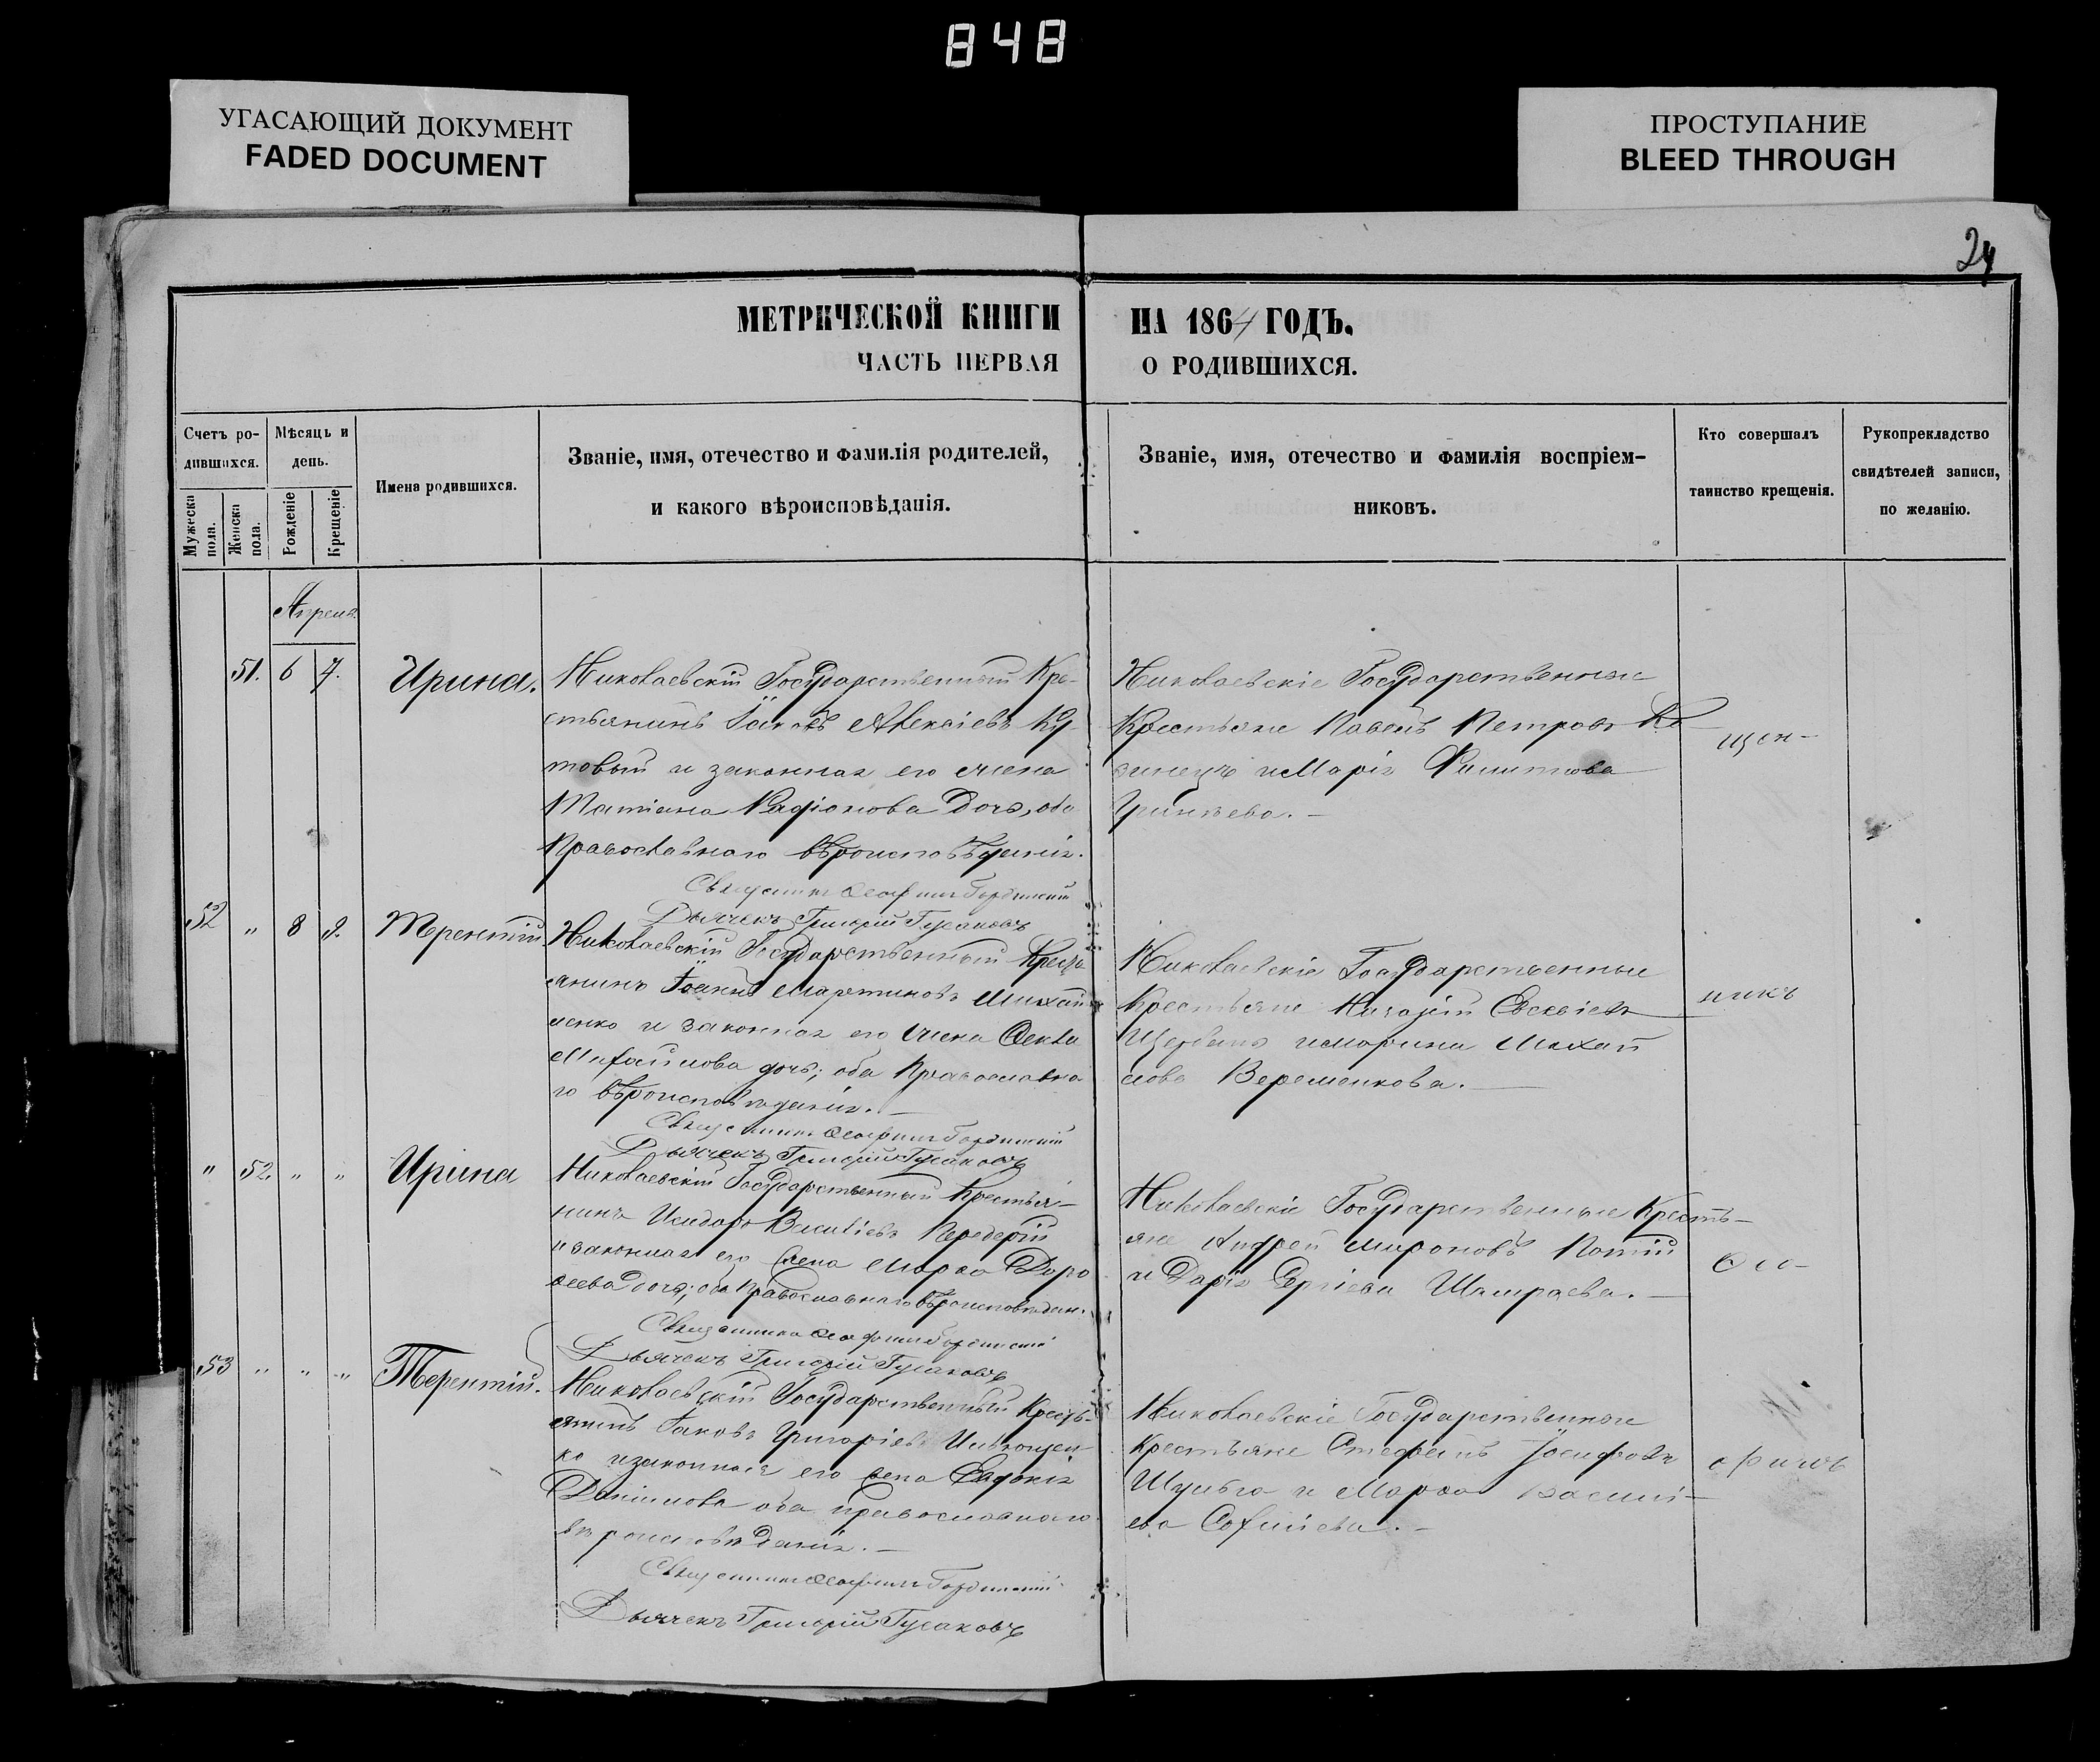 848
УГАСАЮЩИЙ ДОКУМЕНТ
FADED DOCUMENT
ПРОСТУПАНИЕ
BLEED THROUGH
24
МЕТРИЧЕСКОЙ КНИГИ НА 1864 ГОДЪ.
ЧАСТЬ ПЕРВАЯ О РОДИВШИХСЯ.
Счетъ ро-
дившихся.
Мужеска пола.
Женска пола.
Мѣсяцъ и
день.
Рожденіе
Крещеніе
Имена родившихся.
Званіе, имя, отечество и фамилія родителей,
и какого вѣроисповѣданія.
Званіе, имя, отечество и фамилія воспріем-
никовъ.
Кто совершалъ
таинство крещенія.
Рукопрекладство
свидѣтелей записи,
по желанію.
Апрель
51. 6 7. Ирина.
Николаевскій Государственный Кре-
стьянинъ Іаковъ Алексіевъ Ку-
товый и законная его жена
Татіана Радіонова дочь, оба
Православнаго вѣроисповѣданія.
Священникъ Ѳеофилъ
Дьячекъ Григорій Гусаковъ
Николаевскіе Государственные
Крестьяне Павелъ Петровъ
и Марія Филиппова
52 " 8 9. Терентій.
Николаевскій Государственный Кресть
янинъ Іоаннъ Мартиновъ Михай
ленко и законная его жена Ѳекла
Михайлова дочь; оба Православна
го вѣроисповѣданія.
Священникъ Ѳеофилъ
Дьячекъ Григорій Гусаковъ
Николаевскіе Государственные
Крестьяне
и Марина Михай
лова Веременкова.
" 52. " " Ирина
Николаевскій Государственный Крестья-
нинъ Исидоръ Василіевъ Передерій
и законная его жена Марѳа Доро
ѳеева дочь; оба Православнаго вѣроисповѣдан.
Священникъ Ѳеофилъ
Дьячекъ Григорій Гусаковъ
Николаевскіе Государственные Кресть-
яне Андрей Мироновъ
и Дарія Сергіева
53 " " " Терентій.
Николаевскій Государственный Кресть-
янинъ Іаковъ Григоріевъ
и законная его жена Евдокія
Даніилова оба православнаго
вѣроисповѣданія.
Священникъ Ѳеофилъ
Дьячекъ Григорій Гусаковъ
Николаевскіе Государственные
Крестьяне Стефанъ Іосифовъ
Шульга и Марѳа Васил-
ева
щен-
никъ
Ѳео-
филъ